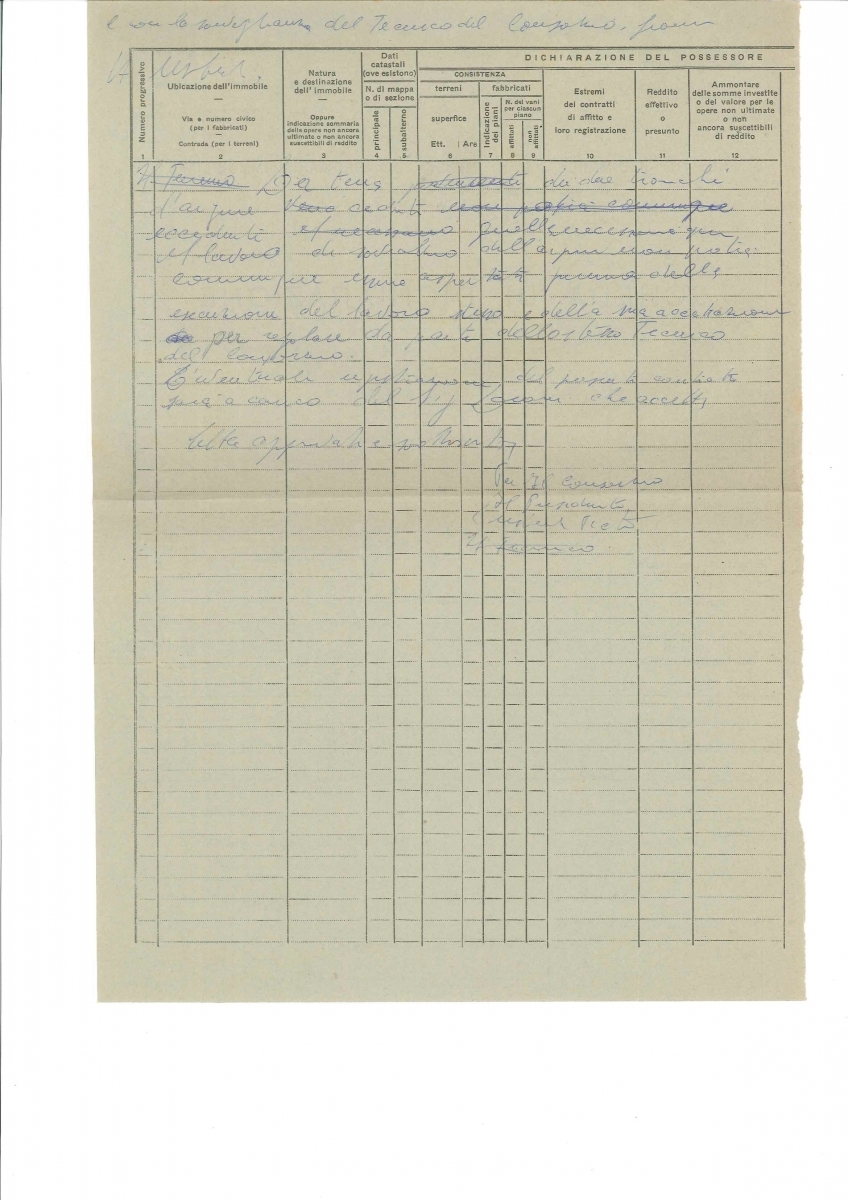 e con la sorveglianza del Tecnico del Consorzio.
DICHIARAZIONE DEL POSSESSORE
Numero progressivo
Ubicazione dell'immobile
—
Via e numero civico
(per i fabbricati)
—
Contrada (per i terreni)
Natura
e destinazione
dell'immobile
—
Oppure
indicazione sommaria
delle opere non ancora
ultimate o non ancora
suscettibili di reddito
Dati
catastali
(ove esistono)
N. di mappa
o di sezione
principale
subalterno
CONSISTENZA
terreni
superfice
Ett. | Are
fabbricati
Indicazione
dei piani
N. dei vani
per ciascun
piano
affittati
non
affittati
Estremi
dei contratti
di affitto e
loro registrazione
Reddito
effettivo
o
presunto
Ammontare
delle somme investite
o del valore per le
opere non ultimate
o non
ancora suscettibili
di reddito
1 2 3 4 5 6 7 8 9 10 11 12
Terreno La terra dei due tronchi
d'argine cedenti non potrà comunque
eccedenti quella necessaria per
il lavoro di dell'argine non potrà
comunque essere asportata prima della
esecuzione del lavoro stesso e della sua accettazione
per regolare da parte dello stesso Tecnico
del Consorzio.
L'eventuale registrazione del presente contratto
sarà a carico del Sig. che accetta
Letto approvato e sottoscritto
Per Il Consorzio
Il Presidente
Il Tecnico.